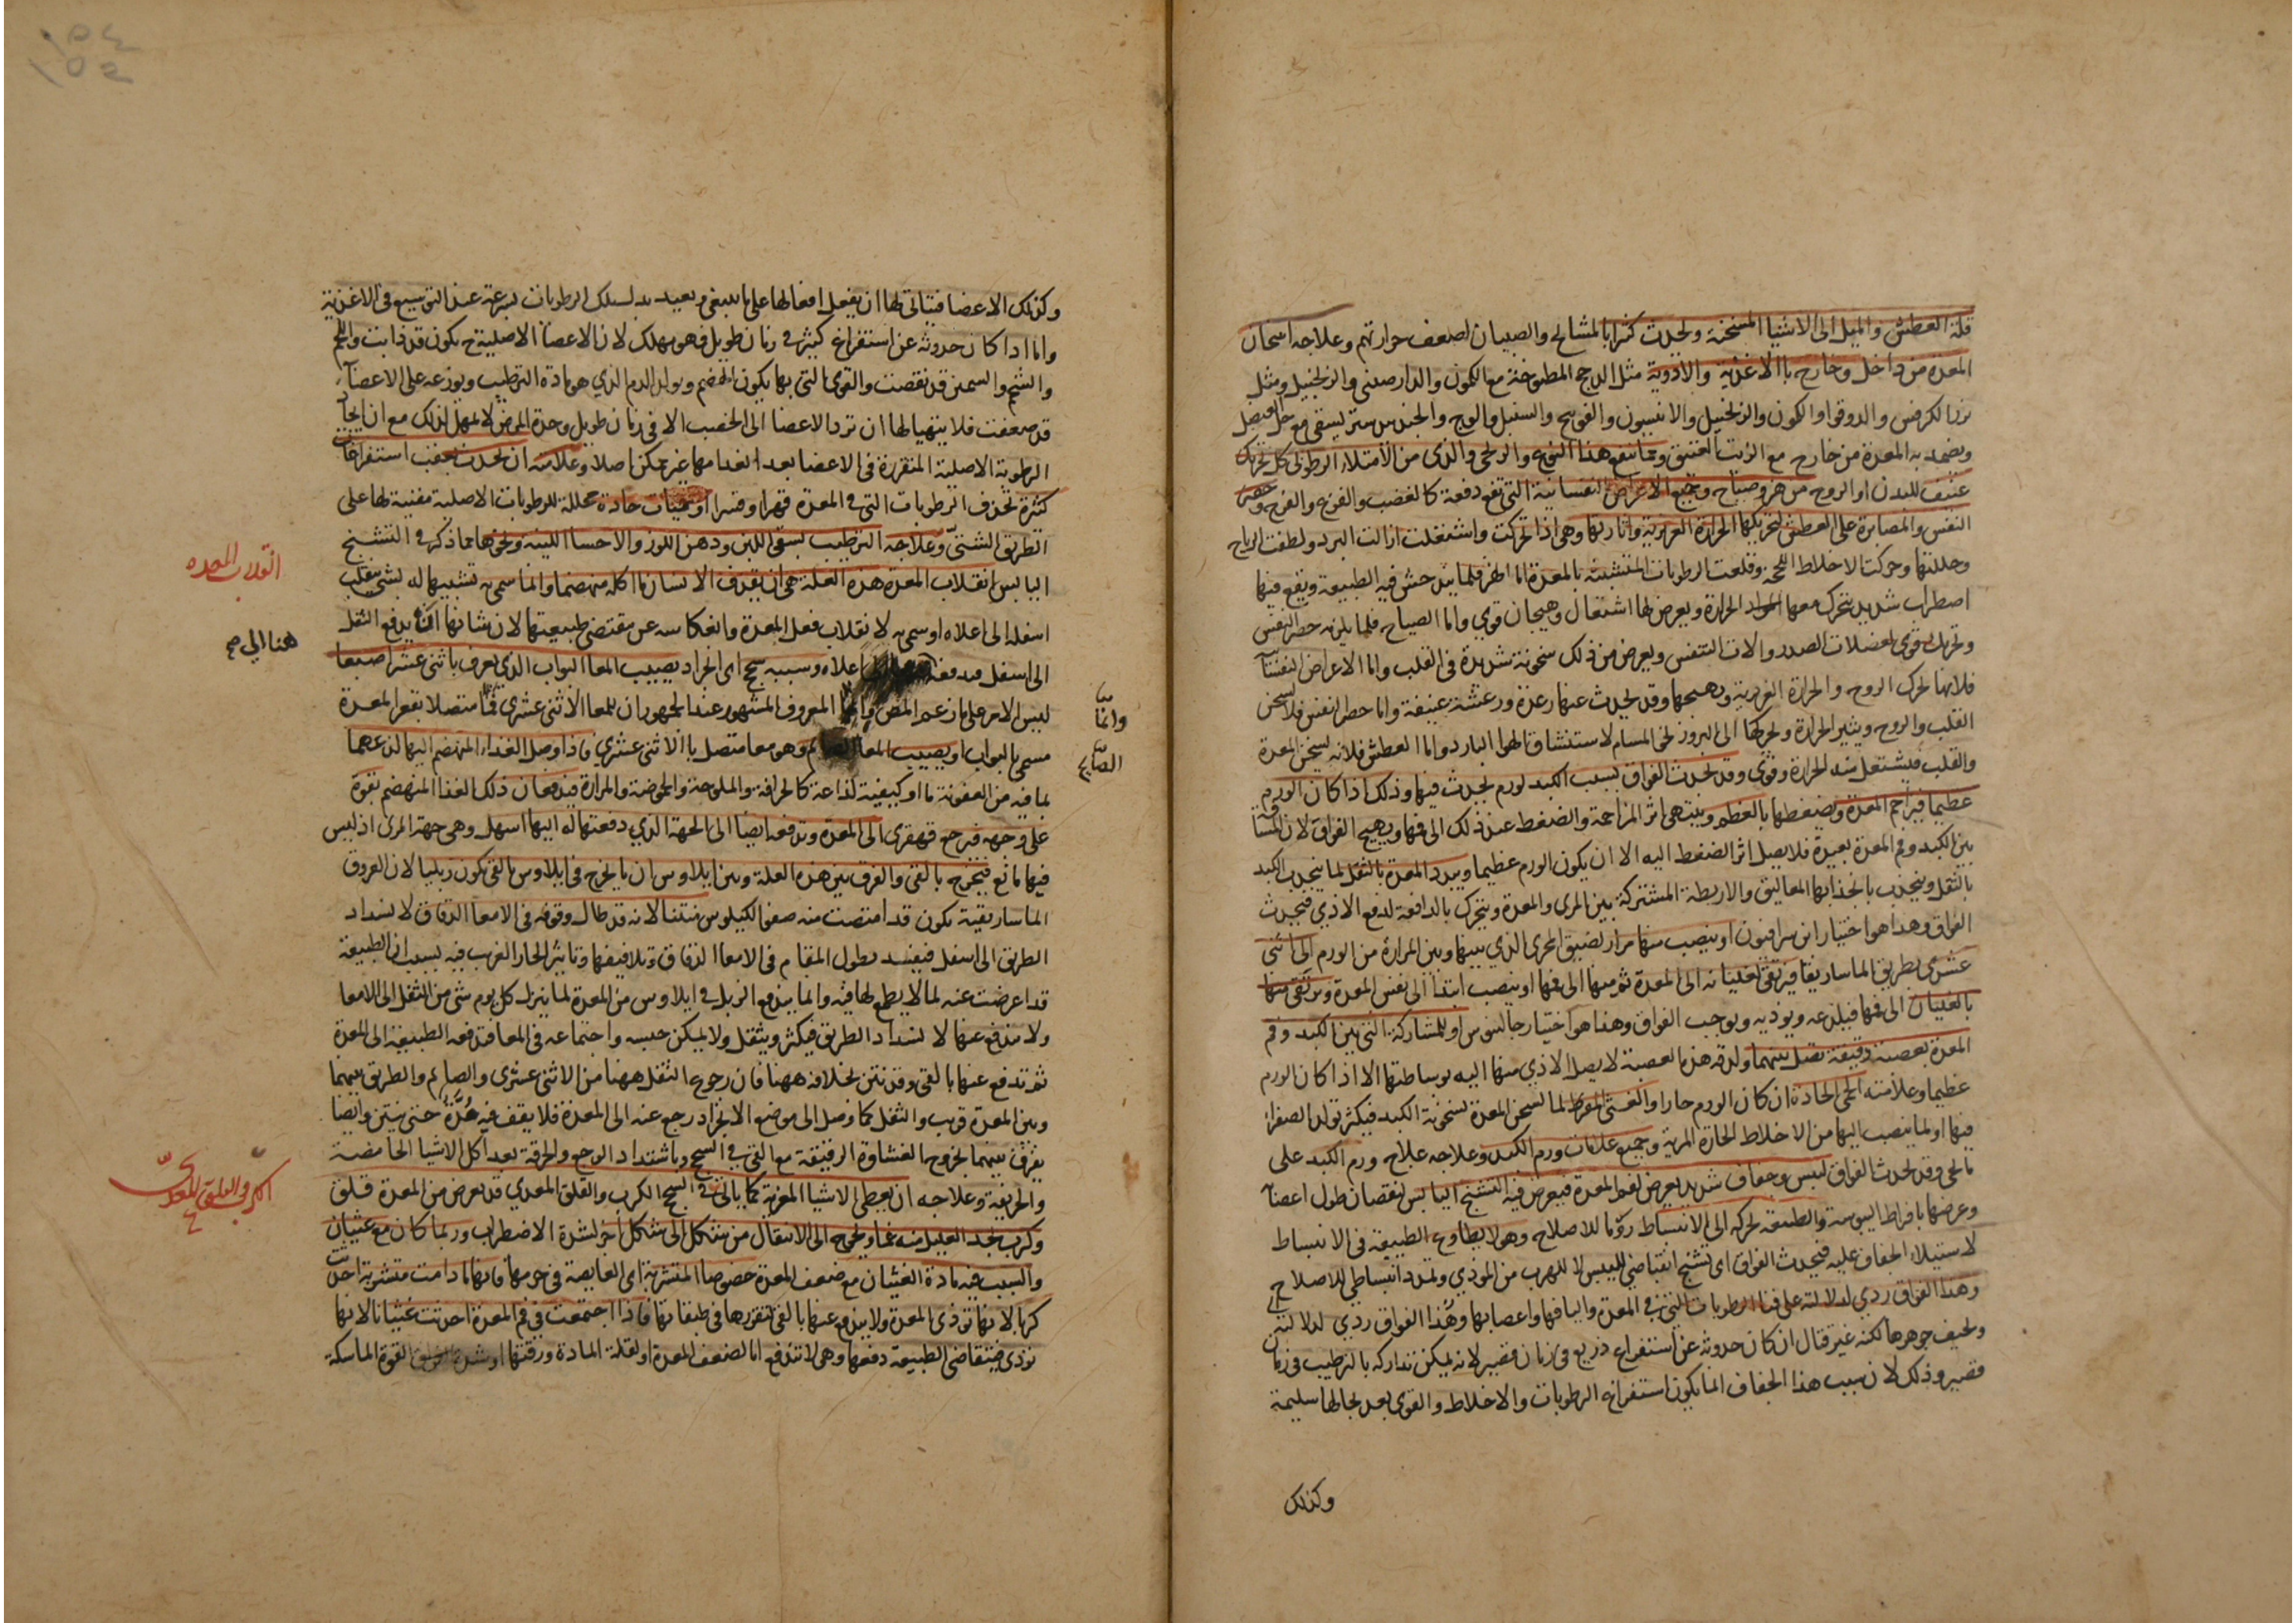 قلة العطش والميل الى الاشيا المسخنة ويحدث كثرا بالمشايخ والصبيان لضعف حرارتهم وعلاجه اسخان
المعدة من داخل وخارج بالاغذية والادوية مثل الدجج المطبوخة مع الكمون والدارصيني والزنجبيل ومثل
بزر الكرفس والدوقوا والكمون والزنجبيل والانيسون والفوتنج والسنبل والوج والجندبيدستر يسقى مع خل العنصل
ويضمد به المعدة من خارج مع الزيت العتيق ومما ينفع هذا النوع والريحي والذي من الامتلاء الرطوبي كل تحريك
عنيف للبدن او الروح من هز وصياح وجميع الاعراض النفسانية التي تقع دفعة كالغضب والفزع والفرح وحصر
النفس والمصابرة على العطش لتحريكها الحرارة الغريزية واثارتها وهي اذا تحركت واشتعلت ازالت البرد ولطفت الرياح
وحللتها وحركت الاخلاط اللحجة وقلعت الرطوبات المتشبثة بالمعدة اما الهز فلما يندهش فيه الطبيعة ويقع فيها
اضطراب شديد يتحرك معها المواد الحرارة ويعرض لها اشتعال وهيجان قوي واما الصياح فلما يلزمه حصر النفس
وتحريك قوى لعضلات الصدر والات التنفس ويعرض من ذلك سخونة شديدة في القلب واما الاعراض النفسا
فلانها تحرك الروح والحرارة الغريزية ويهيجها وقد يحدث عنها رعدة ورعشة عنيفة واما حصر النفس فلا يسخن
القلب والروح ويثير الحرارة وتحركها الى البروز نحو المسام لاستنشاق الهوا البارد واما العطش فلانه يسخن المعدة
والقلب فيشتعل منه الحرارة وقوى وقد يحدث الفواق بسبب الكبد لورم يحدث فيها وذلك اذا كان الورم
عظيما فيزاحم المعدة ويضغطها بالعظم وينتهي اثر المزاحمة والضغط عند ذلك الى فمها ويهيج الفواق لان المسافة
بين الكبد وفم المعدة بعيدة فلا يصل اثر الضغط اليه الا ان يكون الورم عظيما ويمدد المعدة بالثقل لما ينجذب الكبد
بالثقل وينجذب بانجذابها المعاليق والاربطة المشتركة بين المرى والمعدة ويتحرك بالدافعة لدفع الاذي فيحدث
الفواق وهذا هو اختيار ابن سرافيون او ينصب منها مرار لضيق المجرى الذي بينها وبين المرارة من الورم الى اثنى
عشري بطريق الماساريقا فيرتقي لغليانه الى المعدة ثم منها الى فمها او ينصب ابتدا الى نفس المعدة ويرتقي منها
بالغليان الى فمها فيلذعه ويوذيه ويوجب الفواق وهذا هو اختيار جالينوس او للمشاركة التي بين الكبد وفم
المعدة بعصبة دقيقة تصل بينهما ولدقة هذه العصبة لا يصل الاذي منها اليه بوساطتها الا اذا كان الورم
عظيما وعلامته الحمى الحادة ان كان الورم حارا والغشي المفرط لما يسخن المعدة لسخونة الكبد فيكثر تولد الصفرا
فيها او لما ينصب اليها من الاخلاط الحارة المرية وجميع علامات ورم الكبد وعلاجه علاج ورم الكبد على
ما يجي وقد يحدث الفواق ليبس وجفاف شديد يعرض لفم المعدة فيعرض فيه التشنج اليابس لنقصان طول اعصا
وعرضها بافراط اليبوسة والطبيعة تحركه الى الانبساط روما للاصلاح وهو لا يطاوع الطبيعة في الانبساط
لاستيلاء الجفاف عليه فيحدث الفواق اي تشنج انقباضي لليبس لا للهرب من الموذي وتمدد انبساطي للاصلاح
وهذا الفواق ردي لدلالته على فنا الرطوبات التي في المعدة واليافها واعصابها وهذا الفواق ردي لدلالته
وتجفيف جوهرها لكنه غير قتال ان كان حدوثه عن استفراغ ذريع في زمان قصير لانه يمكن تداركه بالترطيب في زمان
قصير وذلك لان سبب هذا الجفاف انما يكون استفراغ الرطوبات والاخلاط والقوى بعد بحالها سليمة
وكذلك
وكذلك الاعضا فيتاتى لها ان يفعل افعالها على ما ينبغي ويعيد بدل تلك الرطوبات بسرعة عند التوسيع في الاغذية
واما اذا كان حدوثه عن استفراغ كثير في زمان طويل فهو مهلك لان الاعضا الاصلية ح يكون قد ذابت واللحم
والشحم والسمين قد نقصت والقوى التي بها يكون الهضم ويولد الدم الذي هو مادة الترطيب ويوزعه على الاعضا
قد ضعفت فلا يتهيا لها ان ترد الاعضا الى الخصب الا في زمان طويل وحدة المرض لا تمهل لذلك مع ان ايجاد
الرطوبة الاصلية المتقررة في الاعضا بعد انعدامها غير ممكن اصلا وعلامته ان يحدث بعقب استفراغات
كثيرة تجذف الرطوبات التي في المعدة قهرا وقسرا او حميات حادة محللة للرطوبات الاصلية مفنية لها على
الطريق الشتى وعلاجه الترطيب بسقي اللبن ودهن اللوز والاحسا اللينة ونحوها مما ذكر في التشنج
اليابس انقلاب المعدة هذه العلة هي ان يقذف الانسان ما اكله منهضما وانما سمي به تشبيها له بشي يقلب
اسفله الى اعلاه او سمي به لانقلاب فعل المعدة وانعكاسه عن مقتضى طبيعتها لان شانها ان يدفع الثقل
الى اسفل فدفعه الى اعلاه وسببه سحج اى انجراد يصيب المعا البواب الذي يعرف باثنى عشر اصبعا
ليس الامر على ما زعم المص وانما المعروف المشهور عند الجمهور ان للمعا الاثنى عشري فما متصلا بقعر المعدة
مسمى بالبواب او يصيب المعا الصايم وهو معا متصل بالاثنى عشري فاذا وصل الغذاء المنهضم اليها لذعهما
بما فيه من العفونة ما او كيفية لذاعة كالحرافة والملوحة والحموضة والمرارة فيدفعان ذلك الغذا المنهضم بقوة
على وجهه فيرجع قهقرى الى المعدة وتدفعه ايضا الى الجهة الذي دفعتها له اليها اسهل وهى جهة المرى اذ ليس
فيها مانع فيخرج بالقي والفرق بين هذه العلة وبين ايلاوس ان ما يخرج في ايلاوس بالقي يكون زبليا لان العروق
الماساريقية يكون قد امتصت منه صفو الكيلوس منتنا لانه قد طال وقوفه في الامعا الدقاق لانسداد
الطريق الى اسفل فيفسد بطول المقام في الامعا الدقاق وتلافيفها وتاثير الحار الغريب فيه بسبب ان الطبيعة
قد اعرضت عنه لما لا يطمع لها فيه وانما يندفع الزبل في ايلاوس من المعدة لما ينزل كل يوم شي من الثقل الى الامعا
ولا يندفع عنها لانسداد الطريق فيكثر ويثقل ولا يمكن حبسه واجتماعه في المعا فتدفعه الطبيعة الى المعدة
ثم تدفع عنها بالقي وقد نتن بخلافه ههنا فان رجوع الثقل ههنا من الاثنى عشري والصايم والطريق بينهما
وبين المعدة قريب والثقل كما وصل الى موضع الانجراد رجع عنه الى المعدة فلا يقف فيه مدة حتى ينتن وايضا
يفرق بينهما بخروج الغشاوة الرقيقة مع القي في السحج وباشتداد الوجع والحرقة بعد اكل الاشيا الحامضة
والحريفة وعلاجه ان يعطى الاشيا المغرية كما ياتي في السحج الكرب والقلق المعدي قد يعرض من المعدة قلق
وكرب يجد العليل منه غما ويحوج الى الانتقال من شكل الى شكل اخر لشدة الاضطراب وربما كان مع غثيان
والسبب فيه مادة الغثيان مع ضعف المعدة خصوصا المتشربة اى الغايصة في جرمها فانها ما دامت متشربة احدثت
كربا لانها توذى المعدة ولا يندفع عنها بالقي لتقررها في طبقاتها فاذا اجتمعت في فم المعدة احدثت غثيانا لانها
توذي فيتقاضى الطبيعة دفعها وهى لا تندفع اما لضعف المعدة او لقلة المادة ورقتها او شدة القوة الماسكة
وانما
الصايم
انقلاب المعده
هنا الي صح
الكرب والقلق المعدي